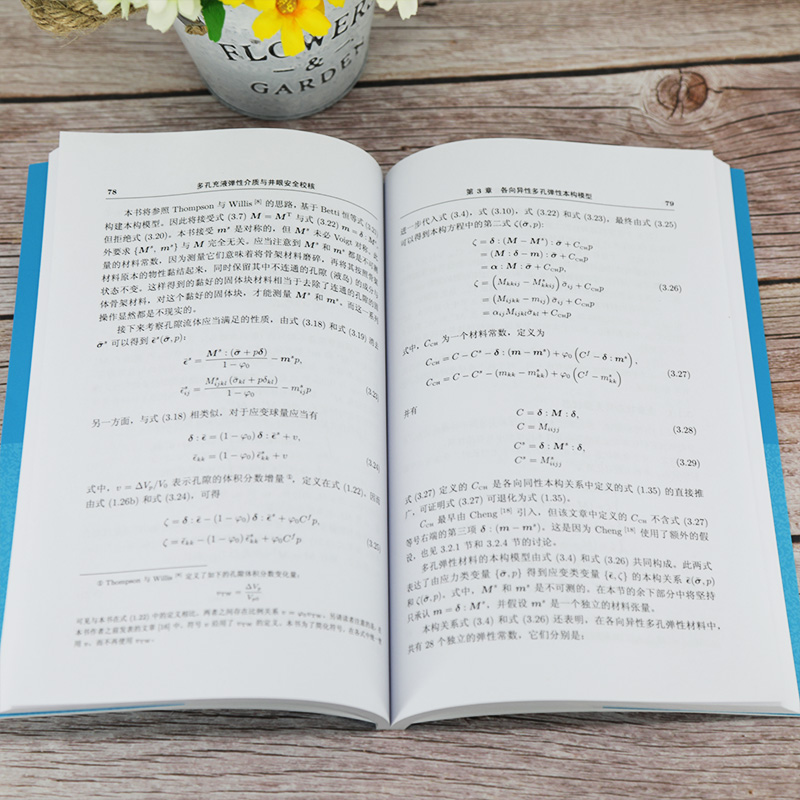 FLOWER
&
GARDEN
78 多孔充液弹性介质与井眼安全校核
本书将参照 Thompson 与 Willis [8] 的思路, 基于 Betti 恒等式 (3.21)
构建本构模型。因此将接受式 (3.7) M = Mᵀ 与式 (3.22) m = δ : Mˢ,
但拒绝式 (3.20)。本书接受 mˢ 是对称的, 但 Mˢ 未必 Voigt 对称, 此
外要求 {Mˢ, mˢ} 与 M 完全无关。应当注意到 Mˢ 和 mˢ 都是不可测
量的材料常数, 因为测量它们意味着将骨架材料磨碎, 再将其按照作
材料原本的物性黏结起来, 同时保留其中不连通的孔隙 (液岛) 的成分与
状态不变。这样得到的黏好的固体块材料相当于去除了连通的孔隙的固
体骨架材料, 对这个黏好的固体块, 才能测量 Mˢ 和 mˢ, 而这一系列
操作显然都是不现实的。
接下来考察孔隙流体应当满足的性质, 由式 (3.18) 和式 (3.19) 消去
σ̄ˢ 可以得到 ε̄ˢ(σ̄, p):
ε̄ˢ = Mˢ : (σ̄ + pδ) / (1 − φ₀) − mˢp,
ε̄ˢᵢⱼ = Mˢᵢⱼₖₗ (σ̄ₖₗ + pδₖₗ) / (1 − φ₀) − mˢᵢⱼp (3.23)
另一方面, 与式 (3.18) 相类似, 对于应变球量应当有
δ : ε̄ = (1 − φ₀) δ : ε̄ˢ + v,
ε̄ₖₖ = (1 − φ₀) ε̄ˢₖₖ + v (3.24)
式中, v = ΔVₚ/V₀ 表示孔隙的体积分数增量②, 定义在式 (1.22), 因此
由式 (1.26b) 和式 (3.24), 可得
ζ = δ : ε̄ − (1 − φ₀) δ : ε̄ˢ + φ₀Cᶠp,
ζ = ε̄ₖₖ − (1 − φ₀) ε̄ˢₖₖ + φ₀Cᶠp (3.25)
② Thompson 与 Willis [8] 定义了如下的孔隙体积分数变化量:
vTW = ΔVₚ / Vₚ₀
可见与本书在式 (1.22) 中的定义相比, 两者之间存在比例关系 v = φ₀vTW。
本书作者之前发表的文章 [16] 中, 符号 v 沿用了 vTW 的定义。本书为了简化符号,
用 v, 而不再使用 vTW。
第 3 章 各向异性多孔弹性本构模型 79
进一步代入式 (3.4), 式 (3.10), 式 (3.22) 和式 (3.23), 最终由式 (3.25)
可以得到本构方程中的第二式 ζ(σ̄, p):
ζ = δ : (M − Mˢ) : σ̄ + CCMp
= (M : δ − m) : σ̄ + CCMp
= α : M : σ̄ + CCMp,
ζ = (Mₖₖᵢⱼ − Mˢₖₖᵢⱼ) σ̄ᵢⱼ + CCMp (3.26)
= (Mᵢⱼₖₖ − mᵢⱼ) σ̄ᵢⱼ + CCMp
= αᵢⱼMᵢⱼₖₗσ̄ₖₗ + CCMp
式中, CCM 为一个材料常数, 定义为
CCM = C − Cˢ − δ : (m − mˢ) + φ₀ (Cᶠ − δ : mˢ),
CCM = C − Cˢ − (mₖₖ − mˢₖₖ) + φ₀ (Cᶠ − mˢₖₖ) (3.27)
并有
C = δ : M : δ,
C = Mᵢᵢⱼⱼ (3.28)
Cˢ = δ : Mˢ : δ,
Cˢ = Mˢᵢᵢⱼⱼ (3.29)
式 (3.27) 定义的 CCM 是各向同性本构关系中定义的式 (1.35) 的直接推
广, 可证明式 (3.27) 可退化为式 (1.35)。
CCM 最早由 Cheng [18] 引入, 但该文章中定义的 CCM 不含式 (3.27)
等号右端的第三项 δ : (m − mˢ)。这是因为 Cheng [18] 使用了额外的假
设, 也见 3.2.1 节和 3.2.4 节的讨论。
多孔弹性材料的本构模型由式 (3.4) 和式 (3.26) 共同构成。此两式
表达了由应力类变量 {σ̄, p} 得到应变类变量 {ε̄, ζ} 的本构关系 ε̄(σ̄, p)
和 ζ(σ̄, p)。式中, Mˢ 和 mˢ 是不可测的。在本节的余下部分中将坚持
只承认 m = δ : Mˢ, 并假设 mˢ 是一个独立的材料张量。
本构关系式 (3.4) 和式 (3.26) 还表明, 在各向异性多孔弹性材料中,
共有 28 个独立的弹性常数, 它们分别是: